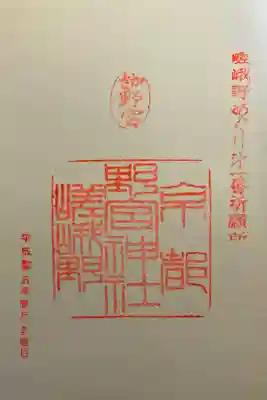 嵯峨野めぐり㐧一番祈願所
野宮
京都
野宮神社
嵯峨野
平成 五年 月 日